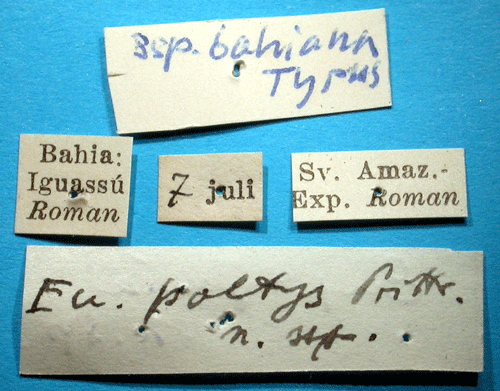 ssp. bahiana
Typus
Bahia:
Iguassú
Roman
7 juli
Sv. Amaz.-
Exp. Roman
Eu. poltys Prittw.
n. ssp.